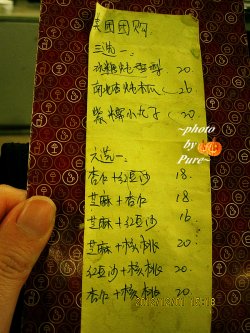 美团团购
三选一.
冰糖炖雪梨 20.
南北杏炖木瓜 26
紫米小丸子 20
六选一.
杏仁+红豆沙 18.
芝麻+杏仁 18
芝麻+红豆沙 16.
芝麻+核桃 20.
红豆沙+核桃 20.
杏仁+核桃 20
~photo
by
Pure~